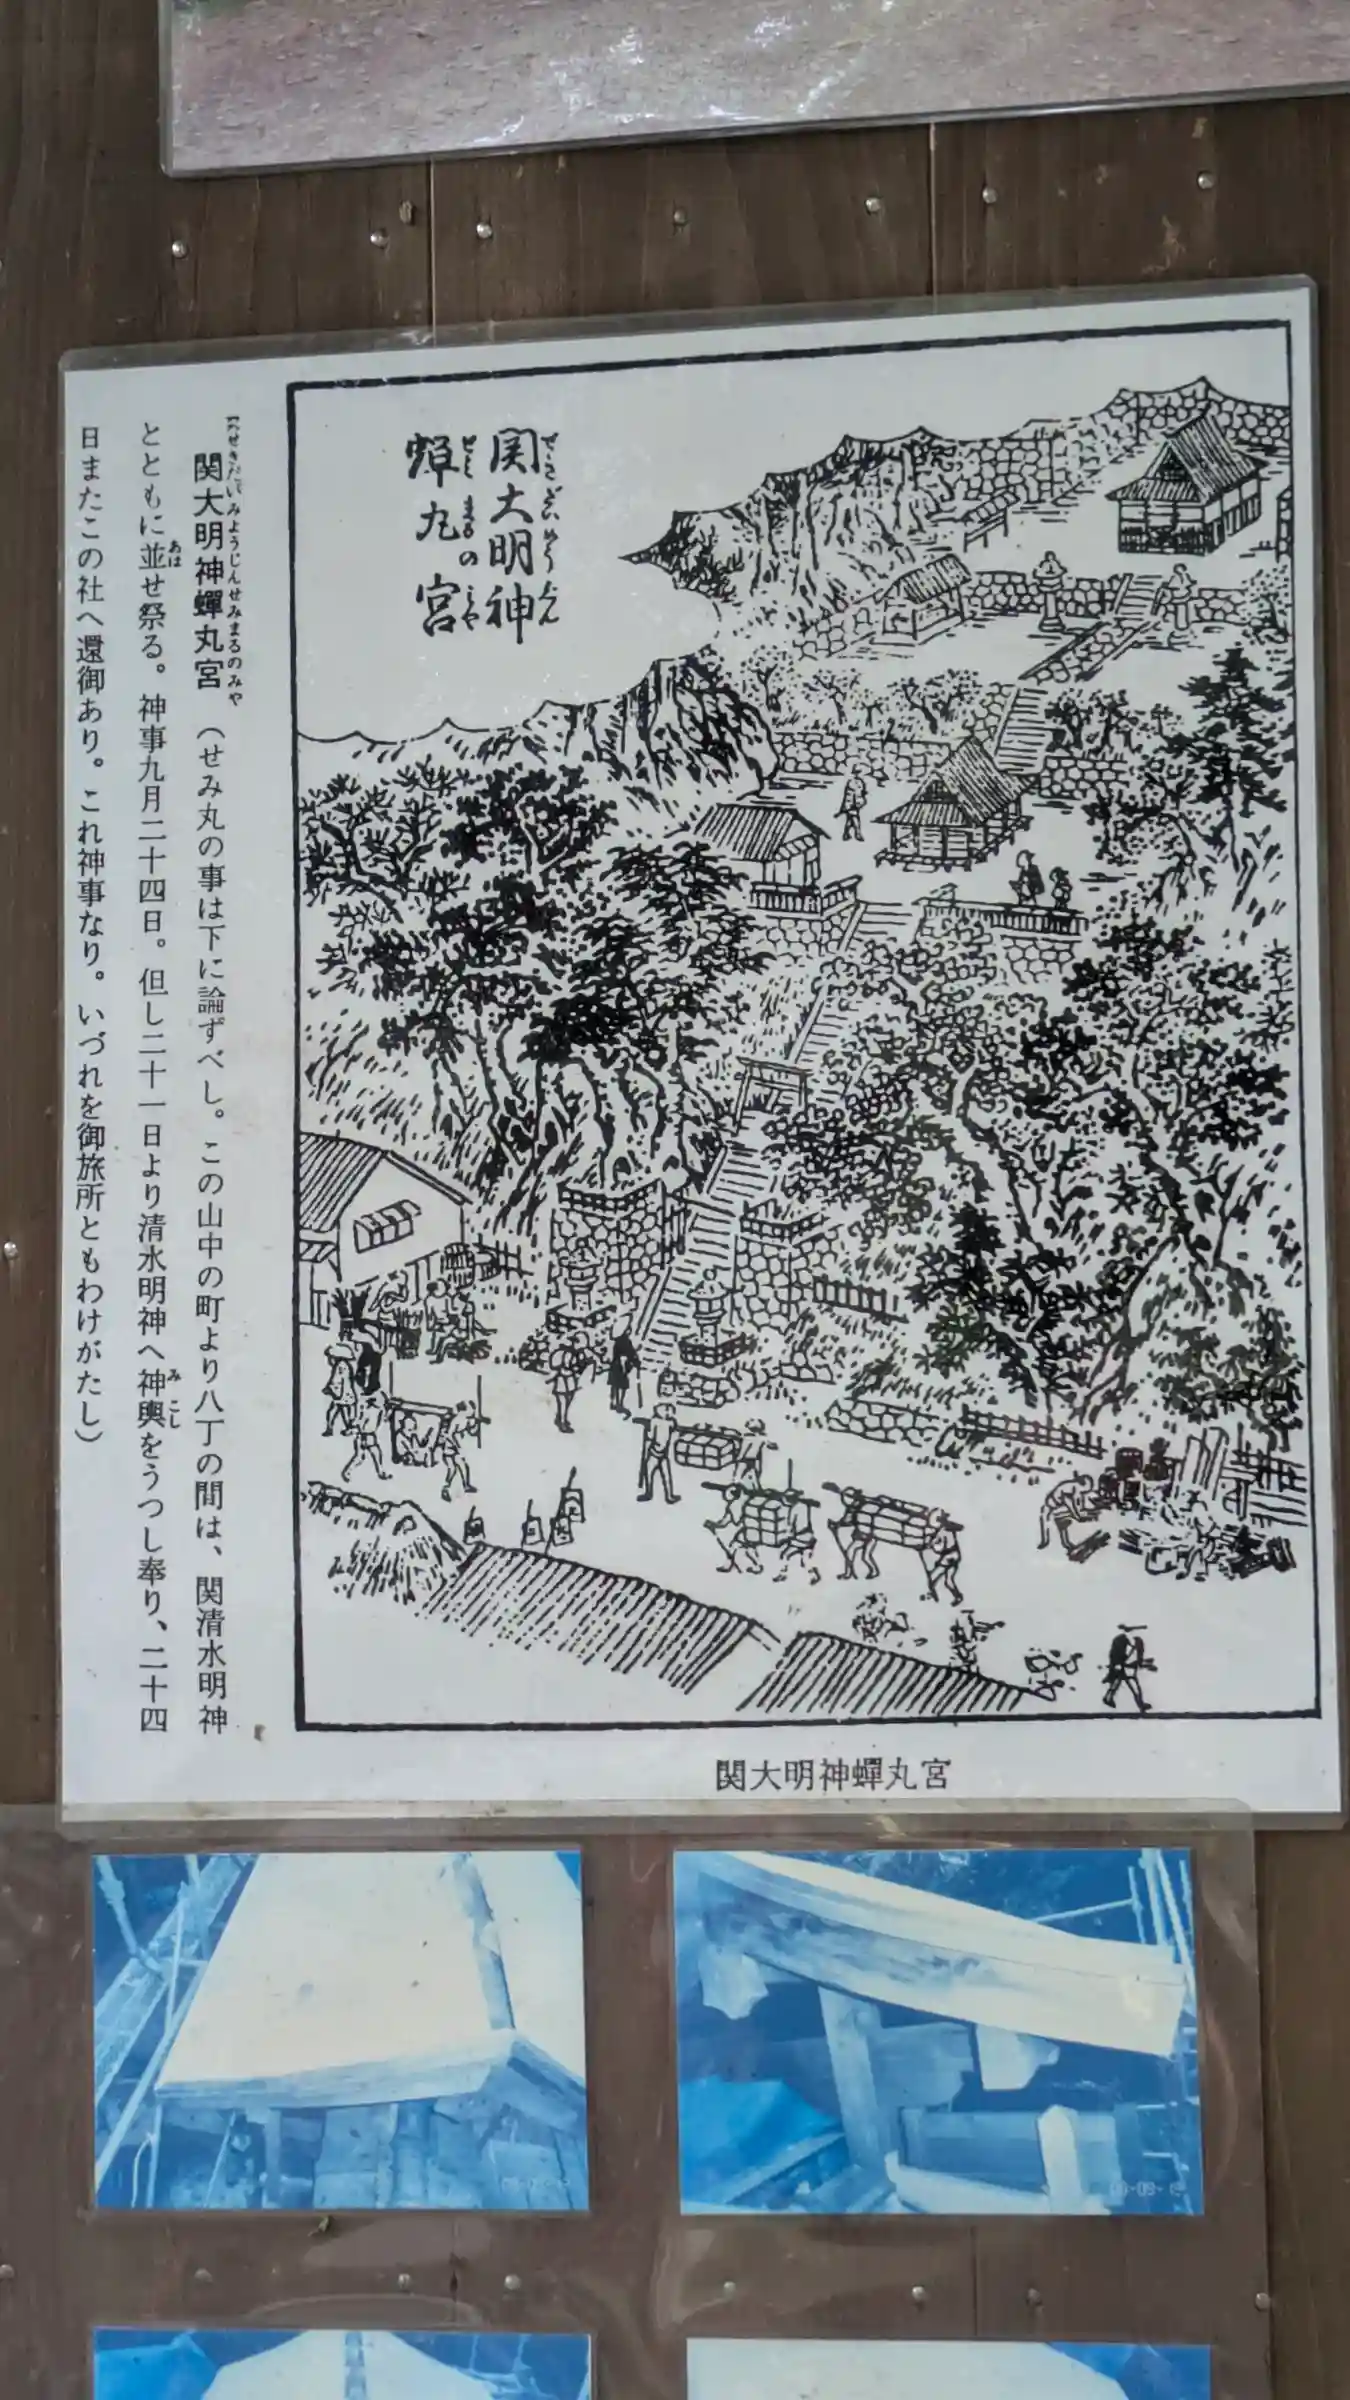 関大明神
蟬丸宮
せみまるの
関大明神蟬丸宮（せみ丸の事は下に論ずべし。この山中の町より八丁の間は、関清水明神
とともに並せ祭る。神事九月二十四日。但し二十一日より清水明神へ神輿をうつし奉り、二十四
日またこの社へ還御あり。これ神事なり。いづれを御旅所ともわけがたし）
せきだいみようじんせみまるのみや
あは
みこし
関大明神蟬丸宮